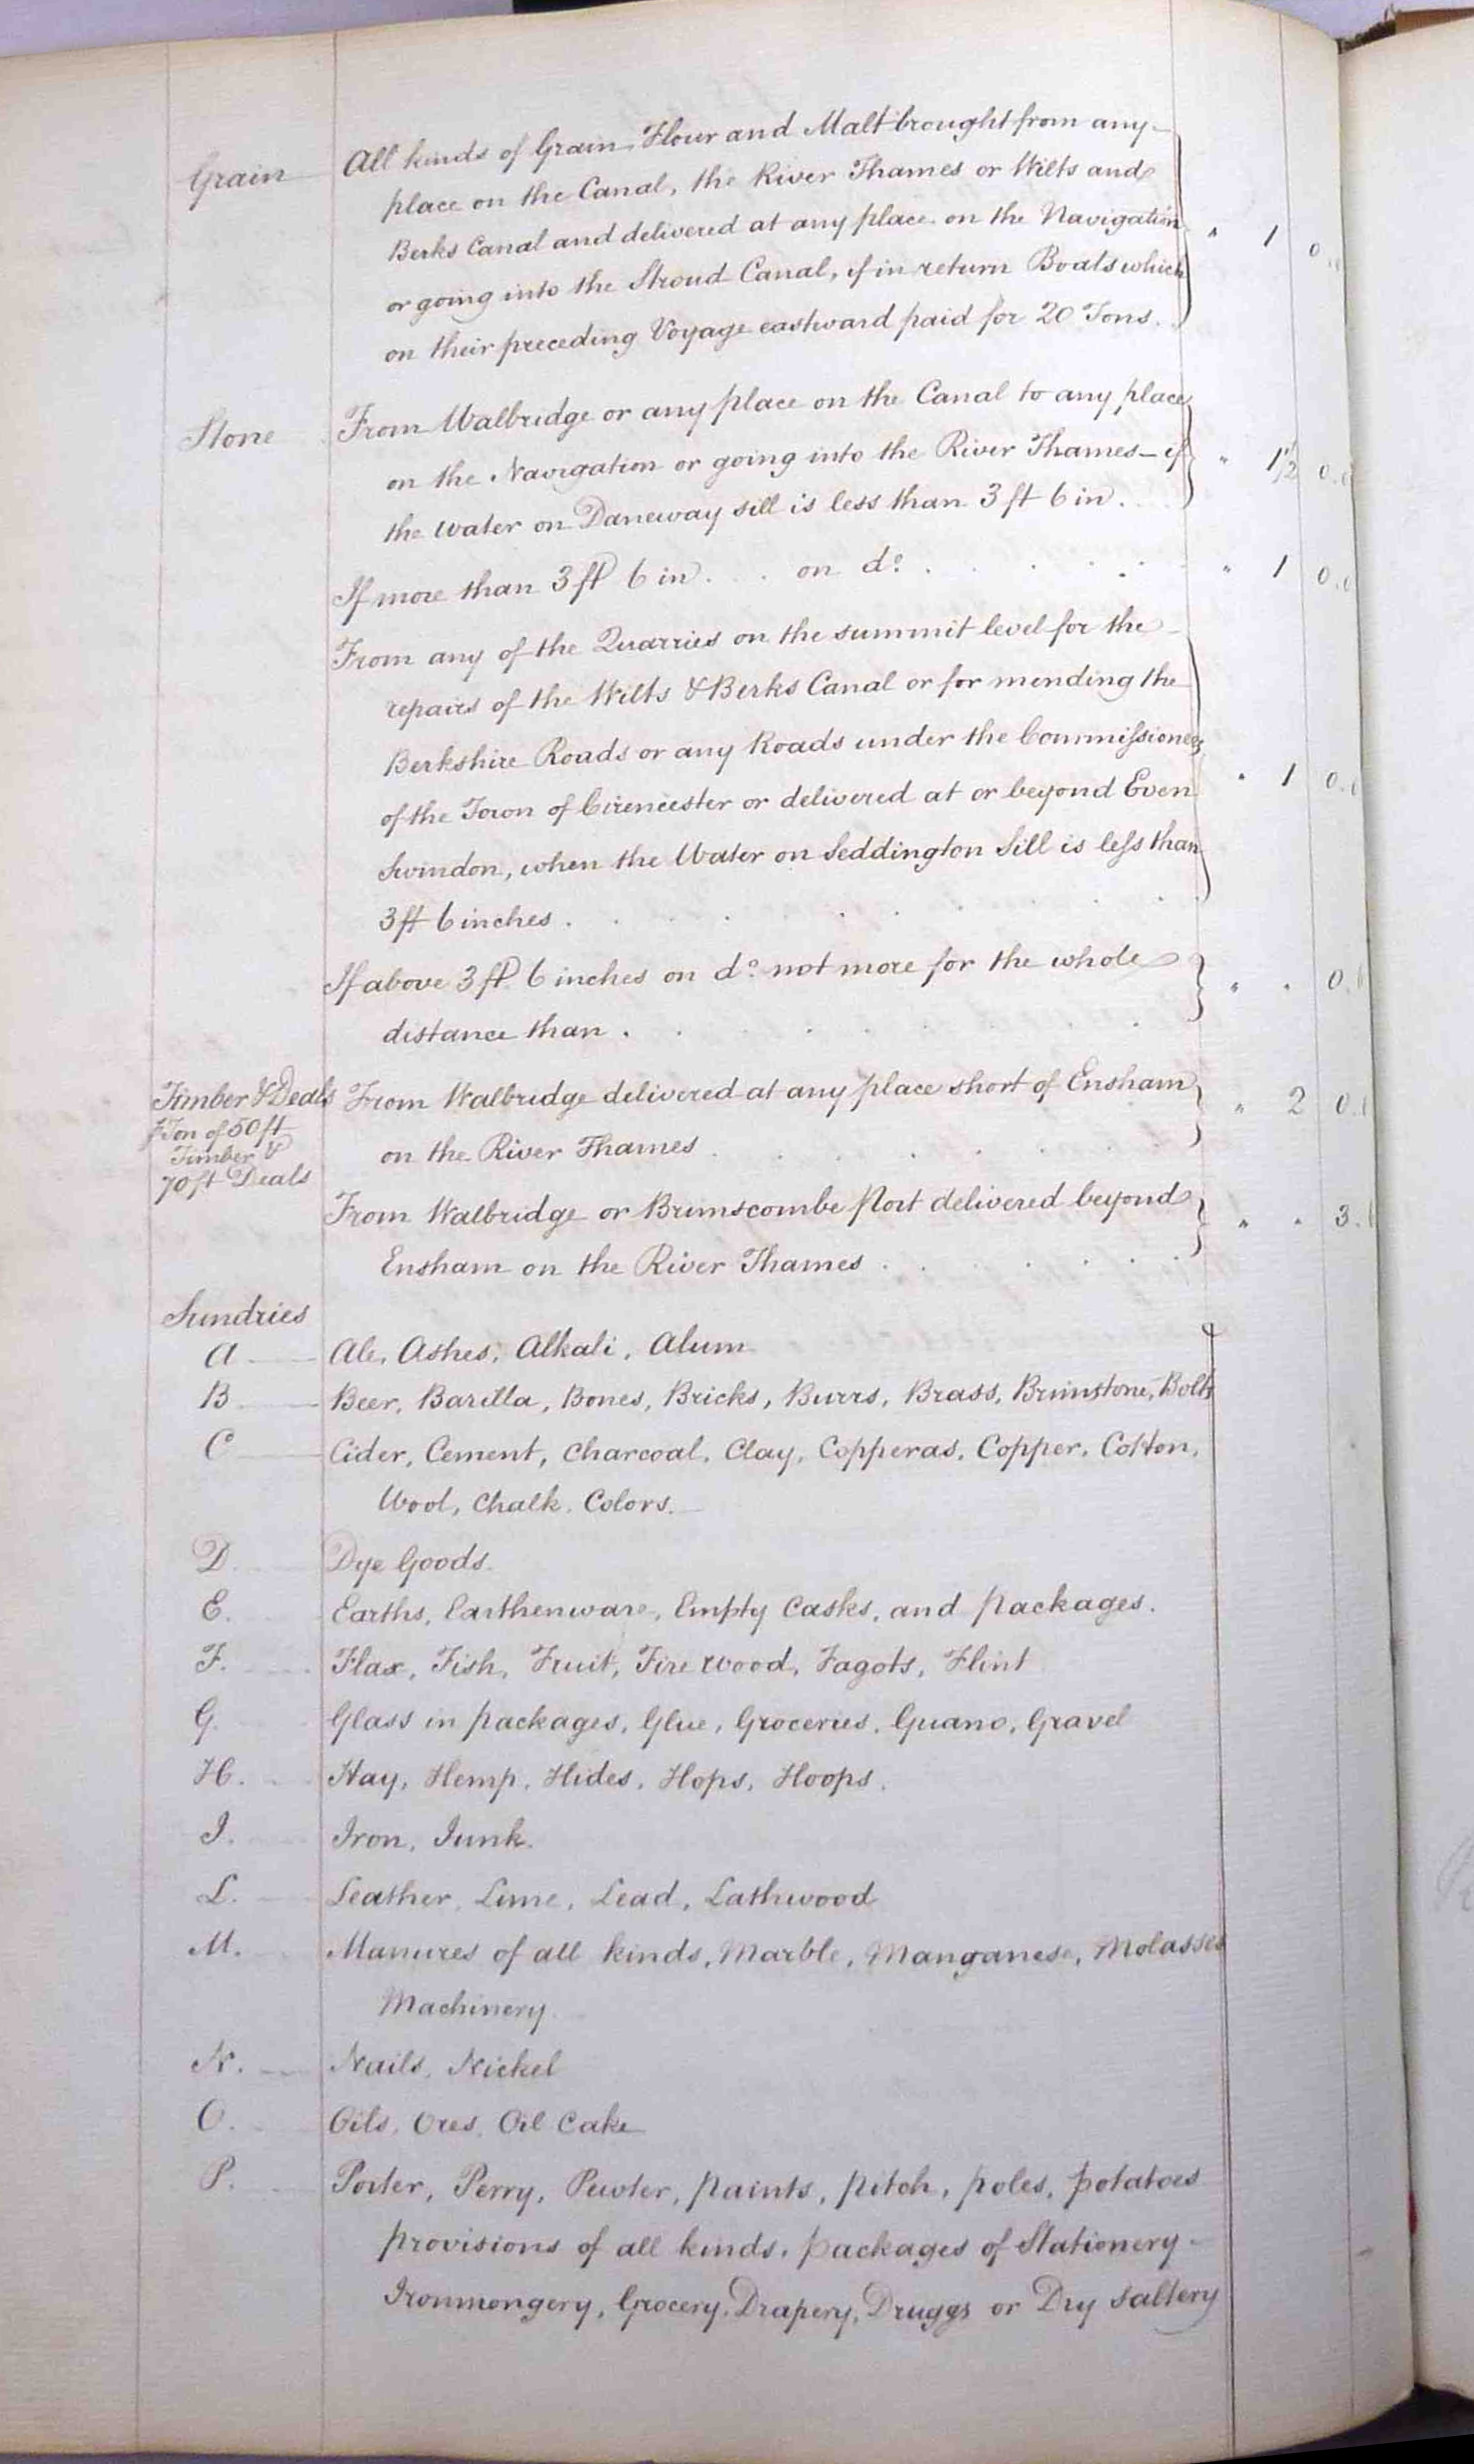 Grain All kinds of Grain, Flour and Malt brought from any
place on the Canal, the River Thames or Wilts and
Berks Canal and delivered at any place on the Navigation " 1 0
or going into the Stroud Canal, if in return Boats which
on their preceding Voyage eastward paid for 20 Tons.
Stone From Walbridge or any place on the Canal to any place
on the Navigation or going into the River Thames – if " 1½ 0
the water on Daneway sill is less than 3 ft 6 in.
If more than 3 ft 6 in . . on do. . . . . . " 1 0
From any of the Quarries on the summit level for the
repairs of the Wilts & Berks Canal or for mending the
Berkshire Roads or any Roads under the Commissioners
of the Town of Cirencester or delivered at or beyond Even " 1 0
Swindon, when the Water on Seddington Sill is less than
3 ft 6 inches . . . . . . . .
If above 3 ft 6 inches on do. not more for the whole " . 0
distance than . . . . . . . .
Timber & Deals From Walbridge delivered at any place short of Ensham " 2 0
Ton of 50 ft
Timber & on the River Thames . . . . . . .
70 ft Deals
From Walbridge or Brimscombe Port delivered beyond " . 3
Ensham on the River Thames . . . . . .
Sundries
A Ale, Ashes, Alkali, Alum
B Beer, Barilla, Bones, Bricks, Burrs, Brass, Brimstone, Bolts
C Cider, Cement, Charcoal, Clay, Copperas, Copper, Cotton,
Wool, Chalk, Colors.
D Dye Goods.
E. Earths, Earthenware, Empty Casks, and packages.
F. Flax, Fish, Fruit, Fire wood, Fagots, Flint
G. Glass in packages, Glue, Groceries, Guano, Gravel
H. Hay, Hemp, Hides, Hops, Hoops.
I. Iron, Junk.
L. Leather, Lime, Lead, Lathwood
M. Manures of all kinds, Marble, Manganese, Molasses
Machinery
N. Nails, Nickel
O. Oils, Ores, Oil Cake
P. Porter, Perry, Pewter, paints, pitch, poles, potatoes
provisions of all kinds, packages of Stationery
Ironmongery, Grocery, Drapery, Druggs or Dry saltery